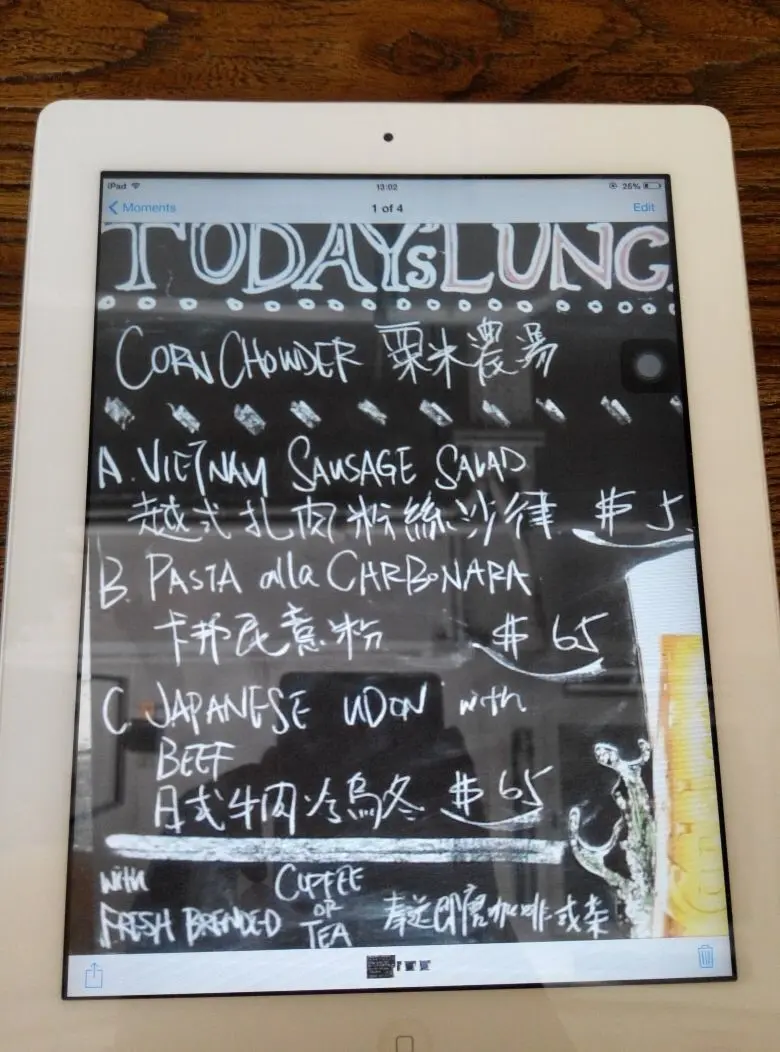 iPad 13:02 25%
Moments 1 of 4 Edit
TODAY'S LUNC
CORN CHOWDER 粟米濃湯
A. VIETNAM SAUSAGE SALAD
越式扎肉粉絲沙律 $ 5
B. PASTA alla CARBONARA
卡邦尼意粉 $ 65
C. JAPANESE UDON with
BEEF
日式牛肉冷烏冬 $ 65
with COFFEE
FRESH BRENDED OR
TEA
奉送即磨咖啡或茶